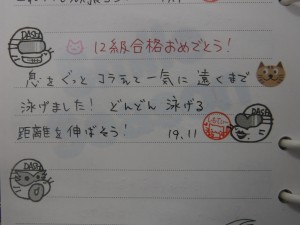 DASH
12級合格おめでとう!
息をぐっと コラえて一気に 遠くまで
泳げました! どんどん 泳げる
距離を伸ばそう! 19.11
DASH
DASH